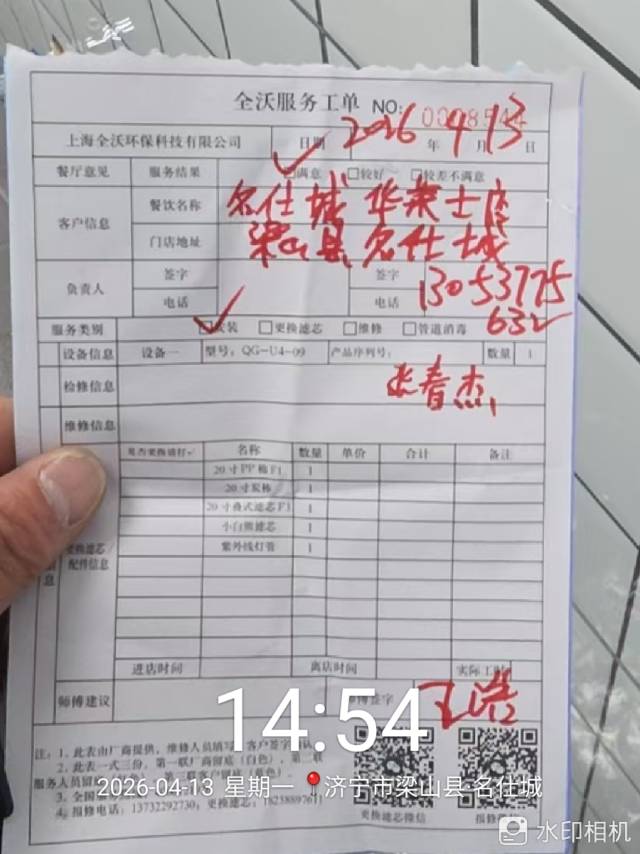 全沃服务工单 NO: 0008544
上海全沃环保科技有限公司 日期 2026 年 4 月 13 日
餐厅意见 服务结果 ✓ □满意 □较好 □较差不满意
客户信息 餐饮名称 名仕城 华莱士店
门店地址 梁山县 名仕城
负责人 签字 签字
电话 电话 13053775632
服务类别 ✓ 安装 □更换滤芯 □维修 □管道消毒
设备信息 设备一 型号: QG-U4-09 产品序列号: 数量 1
检修信息 张春杰
维修信息
名称 数量 单价 合计 备注
20寸PP棉F1 1
20寸炭棒 1
20寸叠式滤芯F1 1
小白熊滤芯 1
紫外线灯管 1
更换滤芯/
配件信息
进店时间 离店时间 实际工时
师傅建议 签字 王浩
14:54
注: 1, 此表由厂商提供, 维修人员填写 客户签字
2, 此表一式三份, 第一联厂商留底(白色), 第二联
服务人员留
3, 全国
4, 报修电话: 13732292730, 更换滤芯: 18238899761)
2026-04-13 星期一 济宁市梁山县·名仕城
更换滤芯微信 报修
水印相机